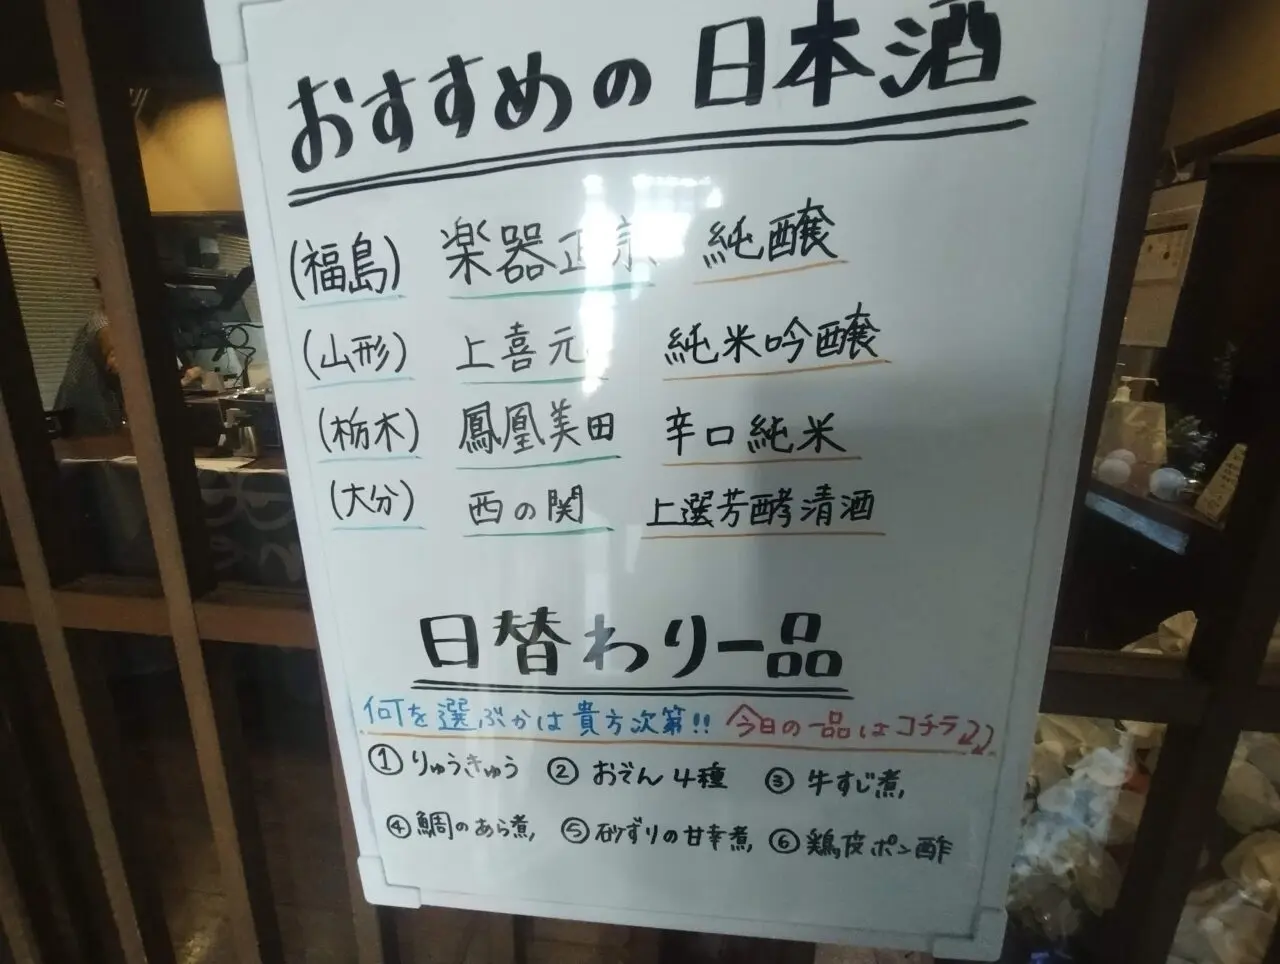 おすすめの日本酒
(福島) 楽器正宗 純醸
(山形) 上喜元 純米吟醸
(栃木) 鳳凰美田 辛口純米
(大分) 西の関 上選芳酵清酒
日替わり一品
何を選ぶかは貴方次第!! 今日の一品はコチラ
① りゅうきゅう ② おでん4種 ③ 牛すじ煮
④ 鯛のあら煮 ⑤ 砂ずりの甘辛煮 ⑥ 鶏皮ポン酢